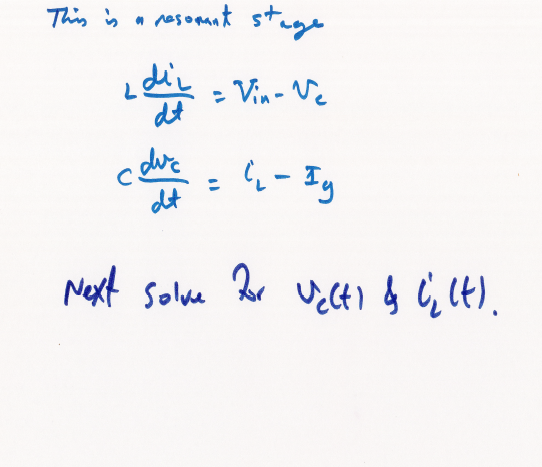 This is a resonant stage
L diL/dt = Vin - Vc
C dvc/dt = iL - Ig
Next solve for Vc(t) & iL(t).